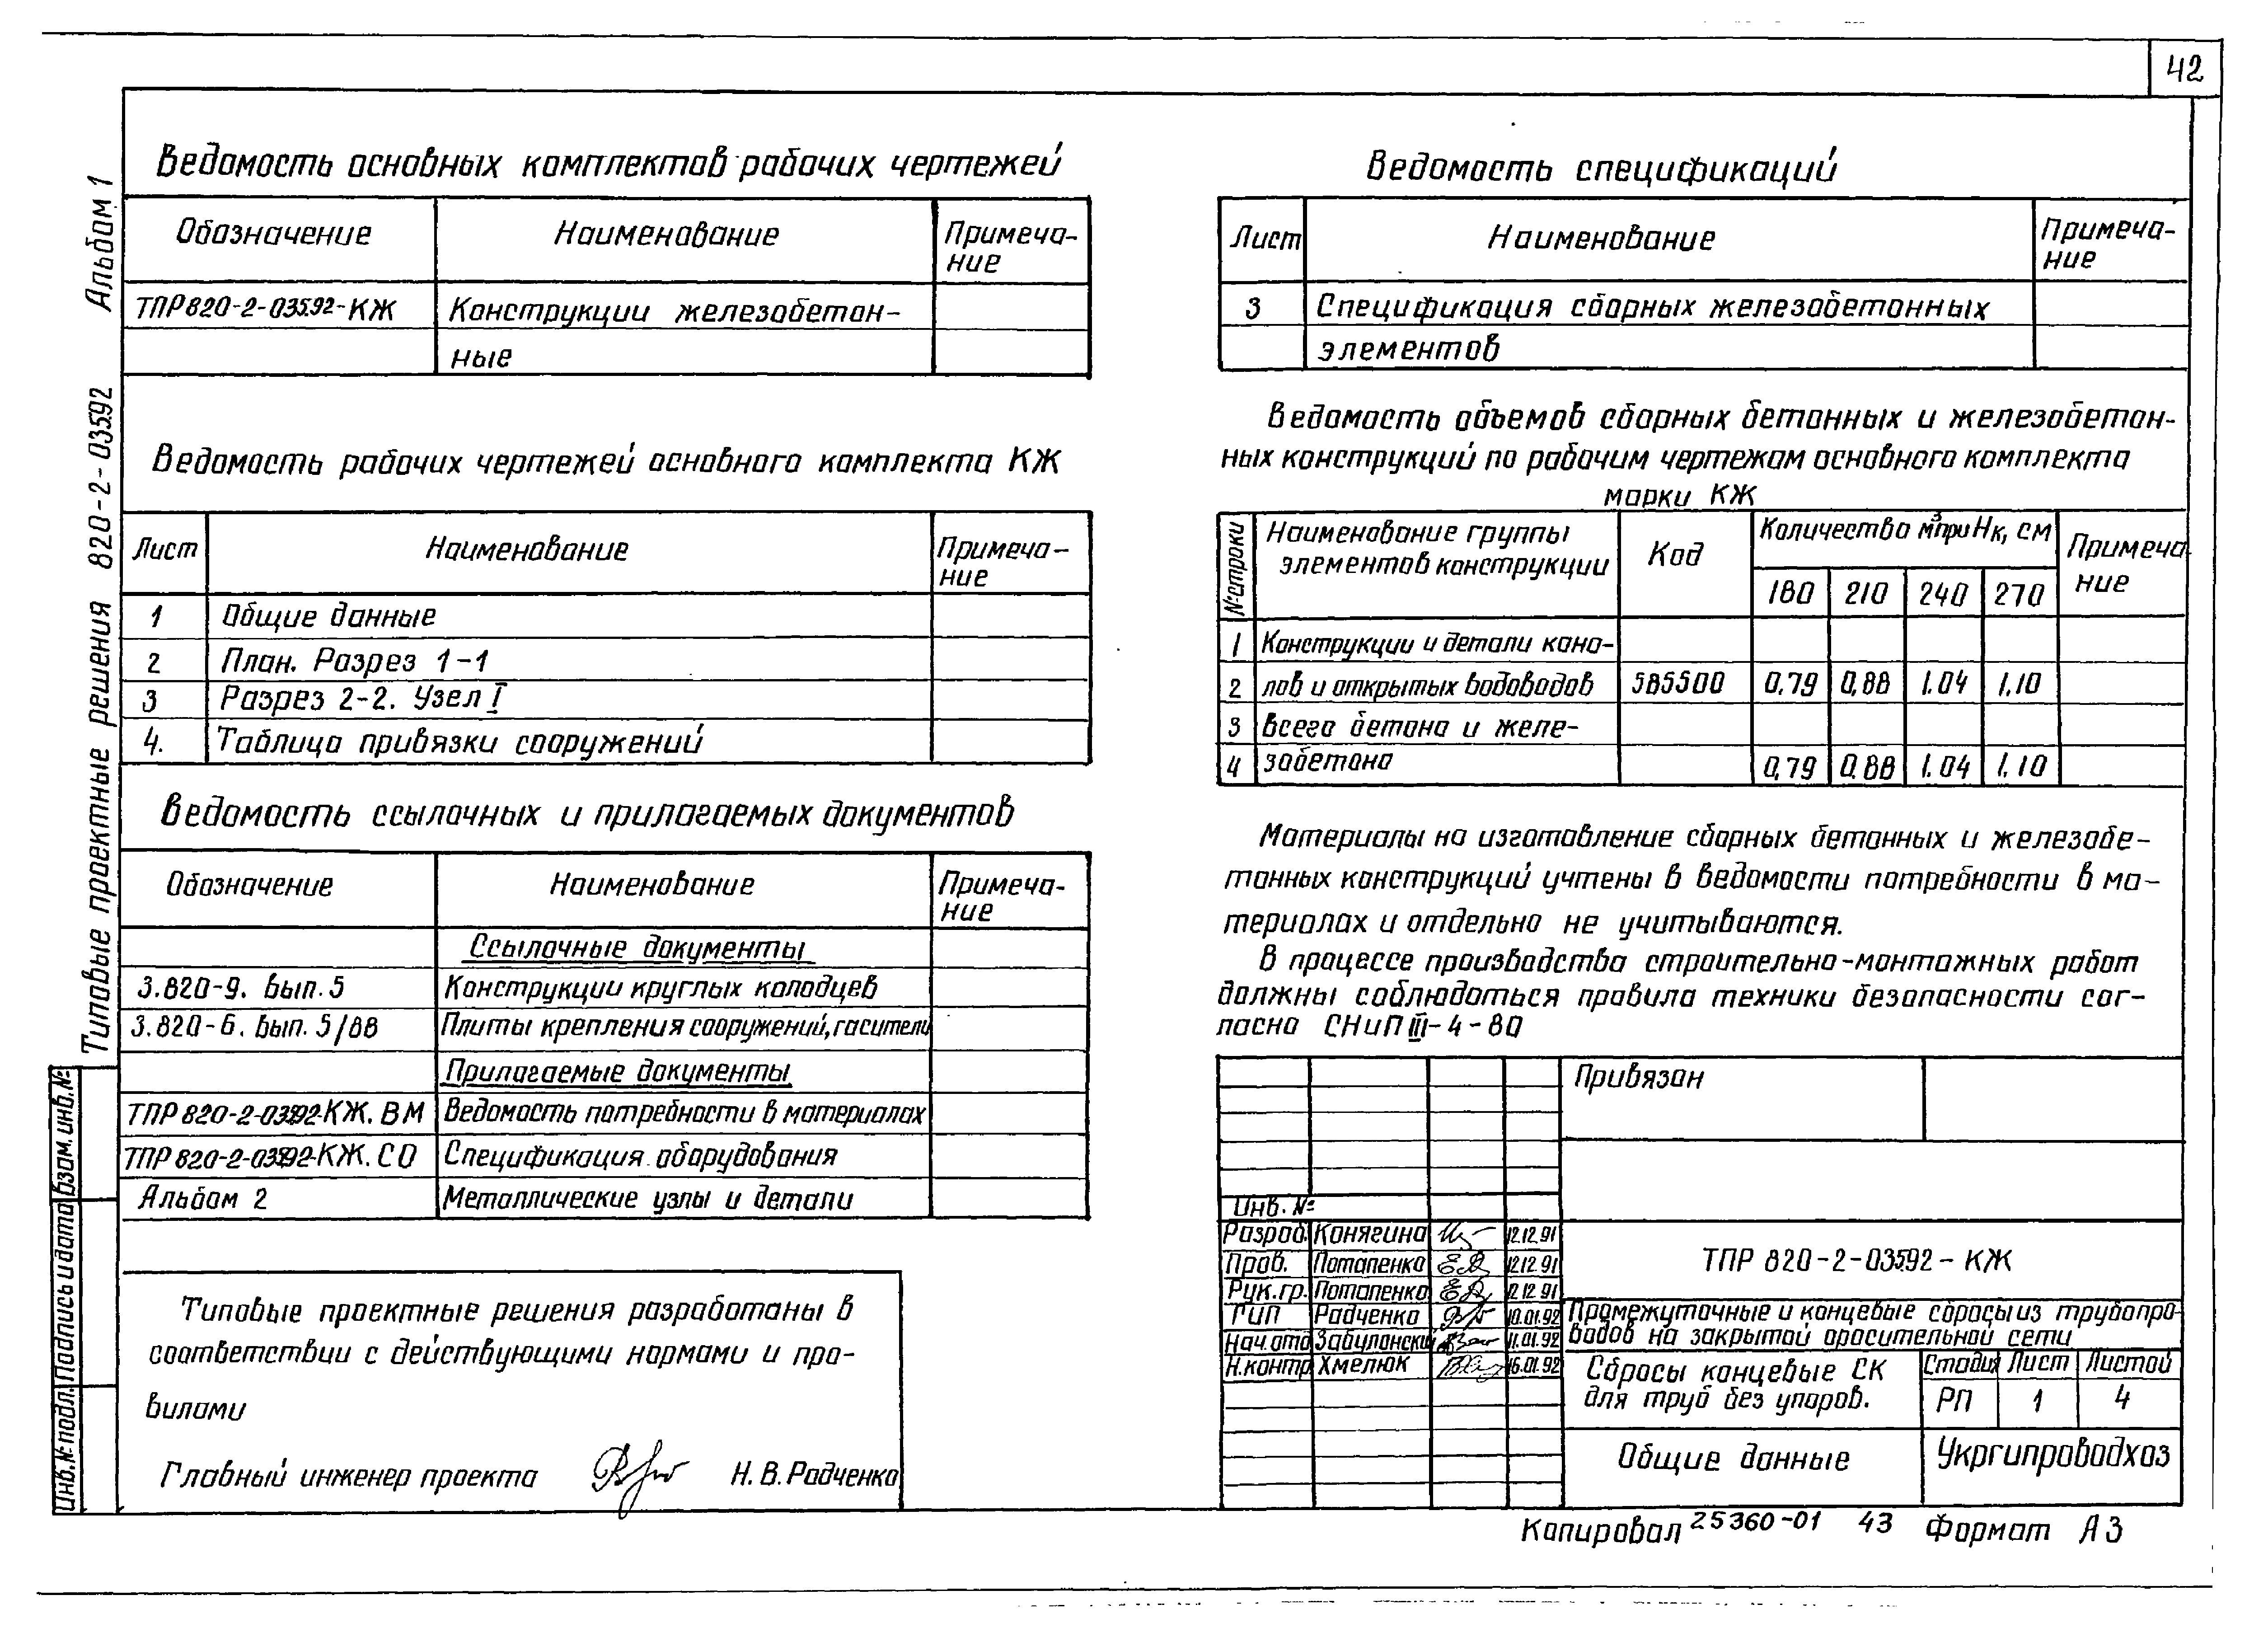 42
Альбом 1
Типовые проектные решения 820-2-03592
Ведомость основных комплектов рабочих чертежей
Обозначение Наименование Примеча-
ние
ТПР 820-2-03592-КЖ Конструкции железобетон-
ные
Ведомость рабочих чертежей основного комплекта КЖ
Лист Наименование Примеча-
ние
1 Общие данные
2 План. Разрез 1-1
3 Разрез 2-2. Узел I
4. Таблица привязки сооружений
Ведомость ссылочных и прилагаемых документов
Обозначение Наименование Примеча-
ние
Ссылочные документы
3.820-9. Вып. 5 Конструкции круглых колодцев
3.820-6. Вып. 5/88 Плиты крепления сооружений, гасители
Прилагаемые документы
ТПР 820-2-03592-КЖ. ВМ Ведомость потребности в материалах
ТПР 820-2-03592-КЖ. СО Спецификация оборудования
Альбом 2 Металлические узлы и детали
Типовые проектные решения разработаны в
соответствии с действующими нормами и пра-
вилами
Главный инженер проекта Н. В. Радченко
Взам. инв. №
Подпись и дата
Инв. № подл.
Ведомость спецификаций
Лист Наименование Примеча-
ние
3 Спецификация сборных железобетонных
элементов
Ведомость объемов сборных бетонных и железобетон-
ных конструкций по рабочим чертежам основного комплекта
марки КЖ
№ строки Наименование группы
элементов конструкции Код Количество м³ при Нк, см Примеча
ние
180 210 240 270
1 Конструкции и детали кана-
2 лов и открытых водоводов 585500 0,79 0,88 1.04 1,10
3 Всего бетона и желе-
4 забетона 0,79 0,88 1.04 1,10
Материалы на изготовление сборных бетонных и железобе-
тонных конструкций учтены в ведомости потребности в ма-
териалах и отдельно не учитываются.
В процессе производства строительно-монтажных работ
должны соблюдаться правила техники безопасности сог-
ласно СНиП III-4-80
Привязан
Инв. №
Разраб. Конягина 12.12.91
Пров. Потапенко 12.12.91
Рук.гр. Потапенко 12.12.91
ГИП Радченко 10.01.92
Нач.отд Забулонский 11.01.92
Н.контр. Хмелюк 16.01.92
ТПР 820-2-03592-КЖ
Промежуточные и концевые сбросы из трубопро-
водов на закрытой оросительной сети
Сбросы концевые СК
для труб без упоров.
Стадия Лист Листов
РП 1 4
Общие данные
Укргипроводхоз
Копировал 25360-01 43 Формат А3